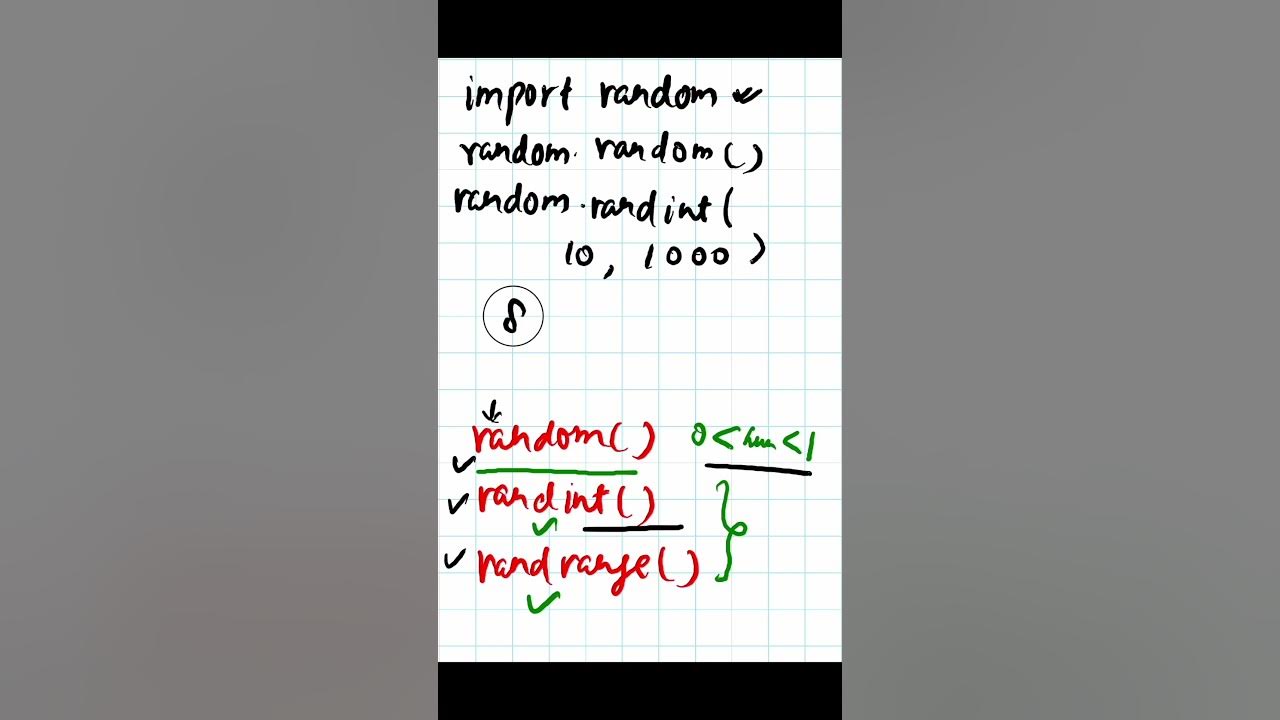 import random
random. random()
random.randint(
10, 1000)
8
random() 0 < < 1
randint()
randrange()